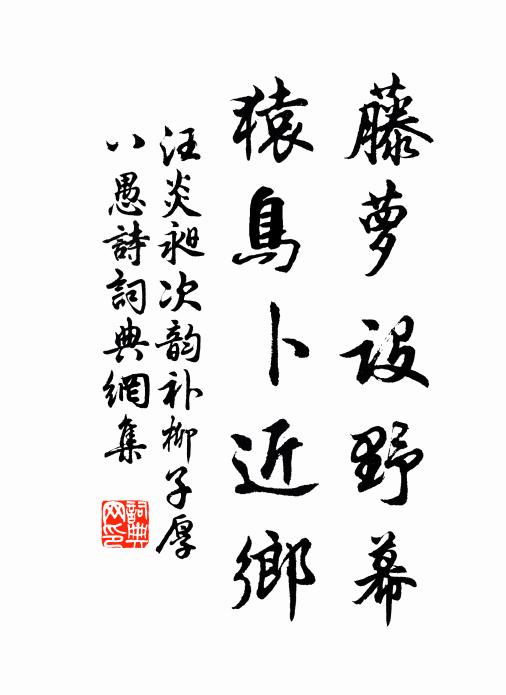 藤萝设野幕
猿鳥卜近鄉
汪炎昶次韵补柳子厚
八愚詩詞典網集
詞典网印